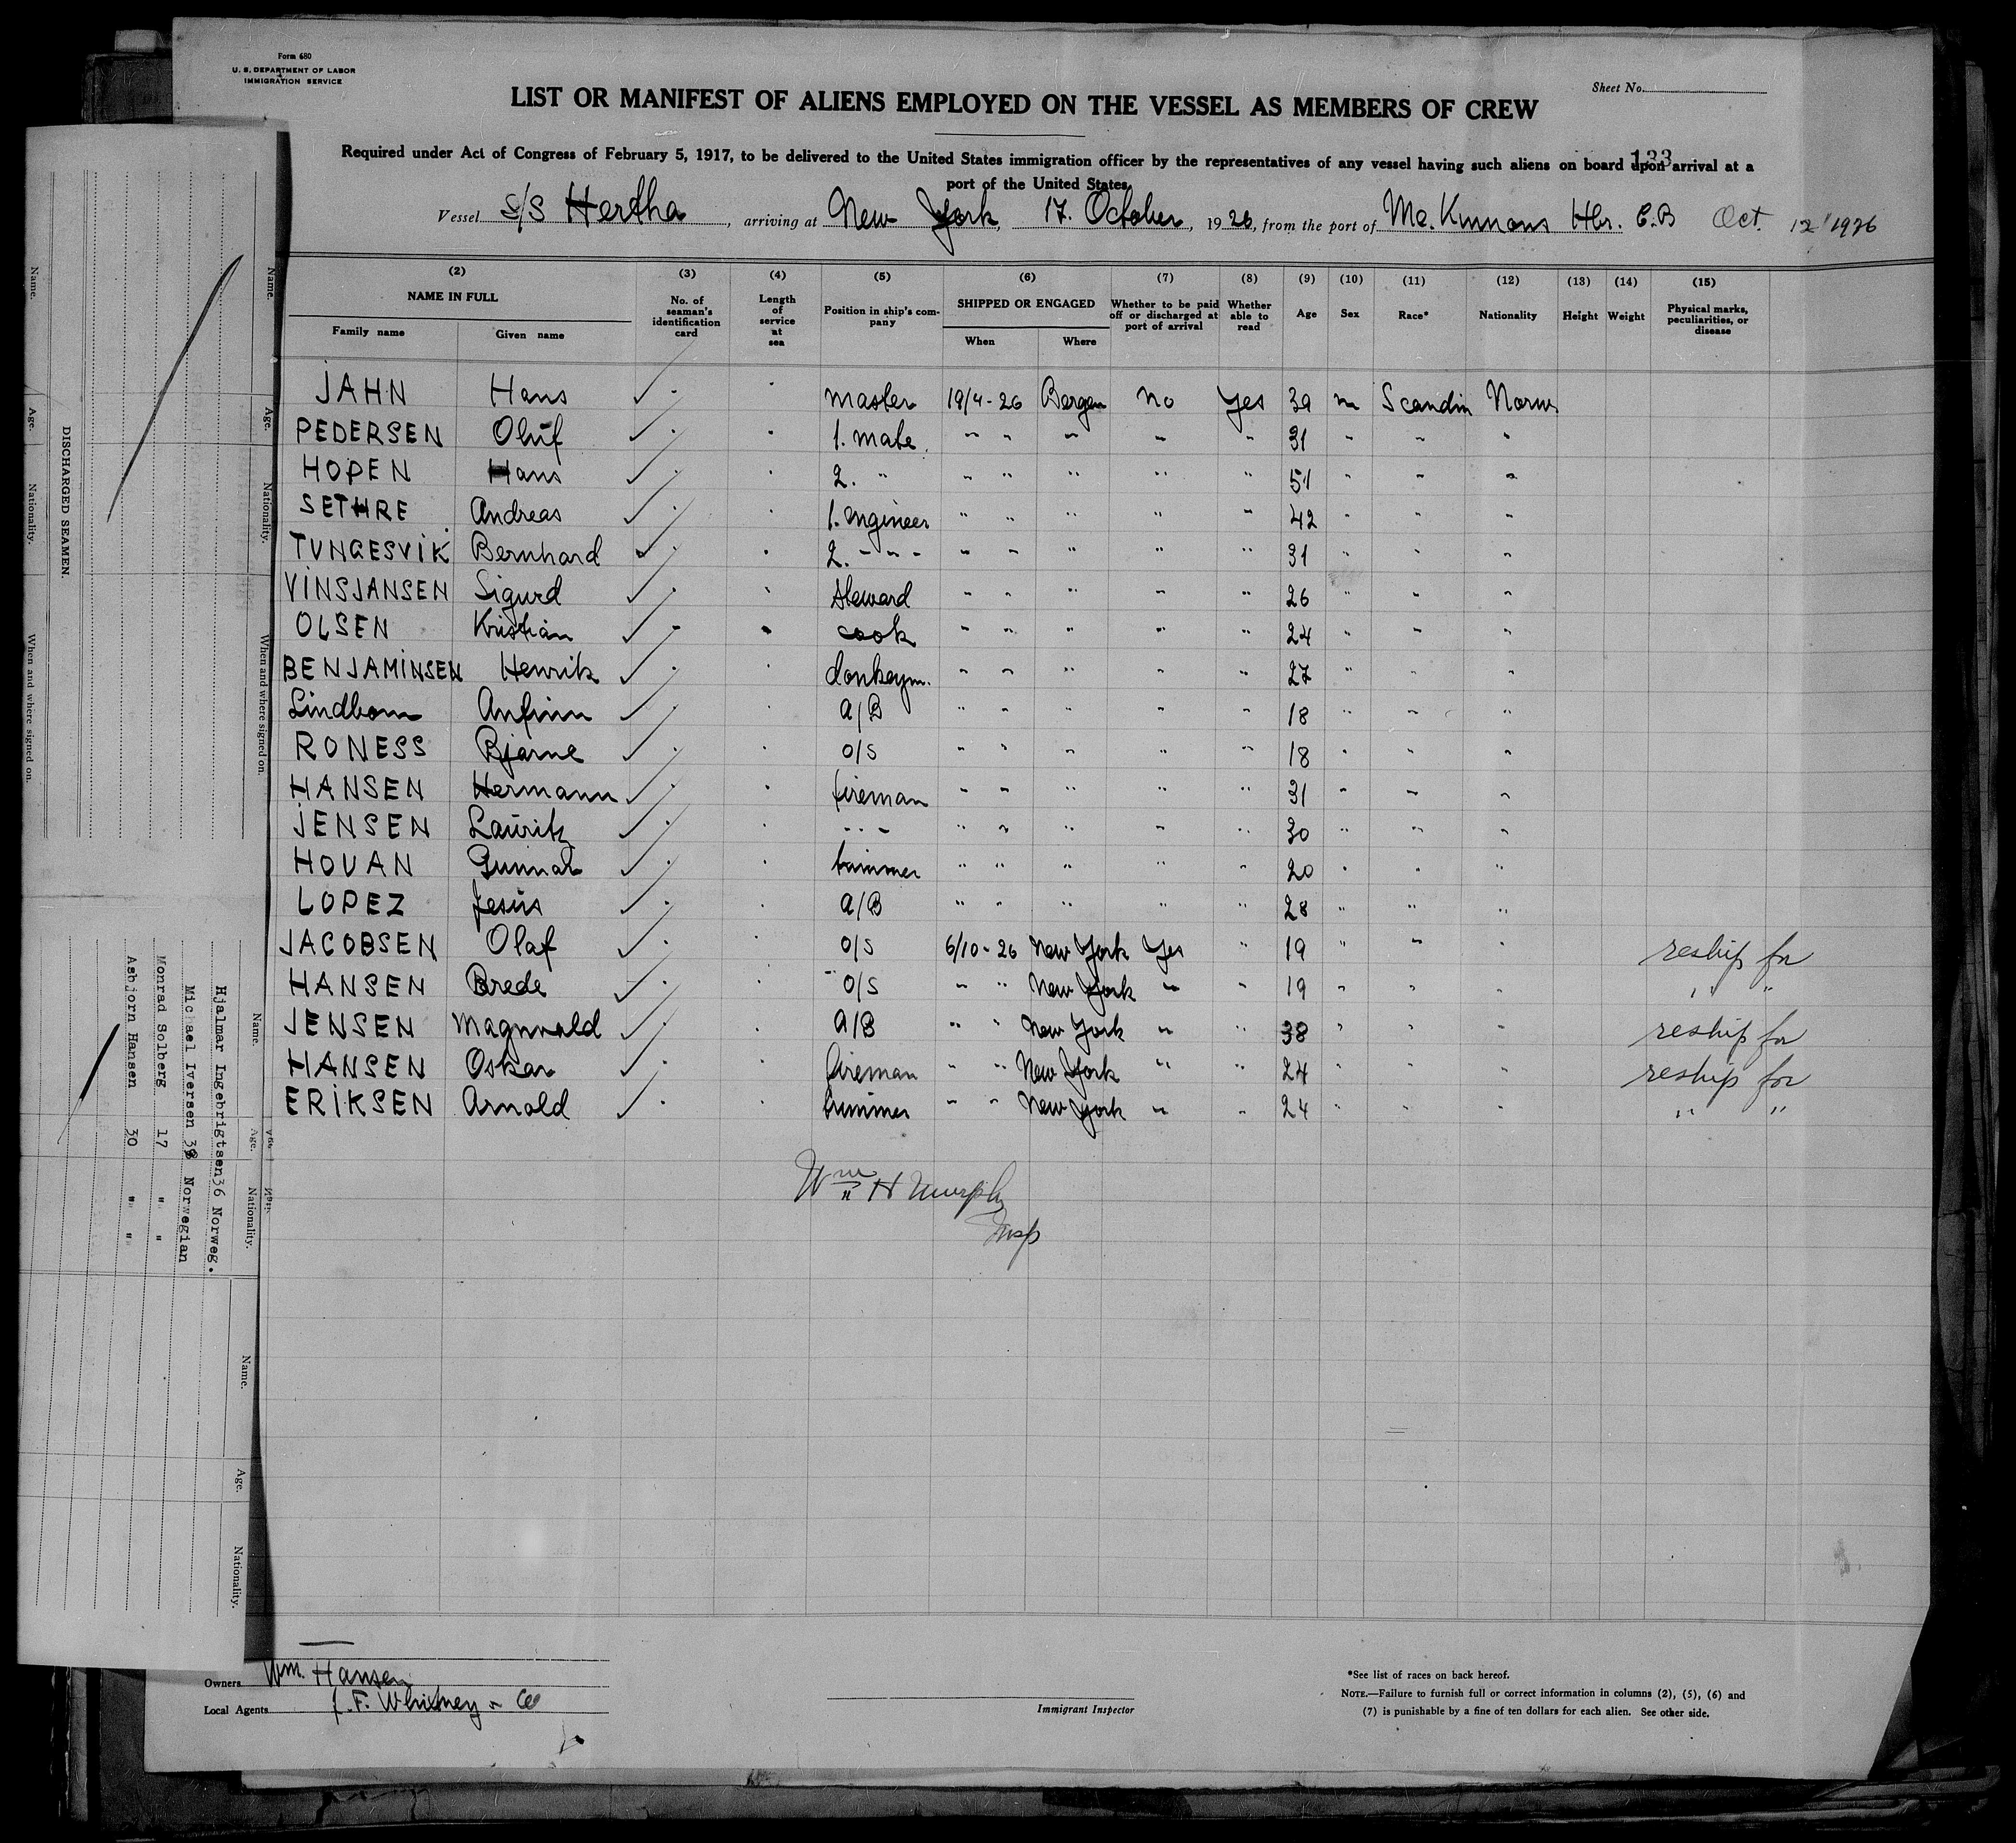 Form 680
U. S. DEPARTMENT OF LABOR
IMMIGRATION SERVICE
Sheet No.
LIST OR MANIFEST OF ALIENS EMPLOYED ON THE VESSEL AS MEMBERS OF CREW
Required under Act of Congress of February 5, 1917, to be delivered to the United States immigration officer by the representatives of any vessel having such aliens on board upon arrival at a
133
port of the United States
Vessel S/S Hertha, arriving at New York, 17. October, 1926, from the port of Mc. Kinnons Hbr. C.B Oct. 12" 1926
(2) (3) (4) (5) (6) (7) (8) (9) (10) (11) (12) (13) (14) (15)
NAME IN FULL No. of seaman's identification card Length of service at sea Position in ship's company SHIPPED OR ENGAGED Whether to be paid off or discharged at port of arrival Whether able to read Age Sex Race* Nationality Height Weight Physical marks, peculiarities, or disease
Family name Given name When Where
JAHN Hans ✓ master 19/4-26 Bergen no Yes 39 m Scandin Norw
PEDERSEN Oluf ✓ 1. mate " " " " " 31 " " "
HOPEN Hans ✓ 2. " " " " " " 51 " " "
SETHRE Andreas ✓ 1. engineer " " " " " 42 " " "
TUNGESVIK Bernhard ✓ 2. - - - " " " " " 31 " " "
VINSJANSEN Sigurd ✓ steward " " " " " 26 " " "
OLSEN Kristian ✓ cook " " " " " 24 " " "
BENJAMINSEN Henrik ✓ donkeym. " " " " " 27 " " "
Lindbom Anfinn ✓ A/B " " " " " 18 " " "
RONESS Bjarne ✓ O/S " " " " " 18 " " "
HANSEN Hermann ✓ fireman " " " " " 31 " " "
JENSEN Lauritz ✓ - - - " " " " " 30 " " "
HOVAN Gunnar ✓ trimmer " " " " " 20 " " "
LOPEZ Jesús ✓ A/B " " " " " 28 " " "
JACOBSEN Olaf ✓ O/S 6/10-26 New York Yes " 19 " " " reship for
HANSEN Brede ✓ O/S " " New York " " 19 " " " " "
JENSEN Magnvald ✓ A/B " " New York " " 38 " " " reship for
HANSEN Oskar ✓ fireman " " New York " " 24 " " " reship for
ERIKSEN Arnold ✓ trimmer " " New York " " 24 " " " " "
Wm H Murphy
Insp
Owners Wm. Hansen
Local Agents J. F. Whitney & Co
Immigrant Inspector
*See list of races on back hereof.
NOTE.—Failure to furnish full or correct information in columns (2), (5), (6) and
(7) is punishable by a fine of ten dollars for each alien. See other side.
DISCHARGED SEAMEN.
Name. Age. Nationality. When and where signed on.
Name. Age. Nationality. When and where signed on.
Name. Age. Nationality.
Hjalmar Ingebrigtsen 36 Norweg.
Michael Iversen 38 Norwegian
Monrad Solberg 17 " "
Asbjorn Hansen 30 " "
Name. Age. Nationality.